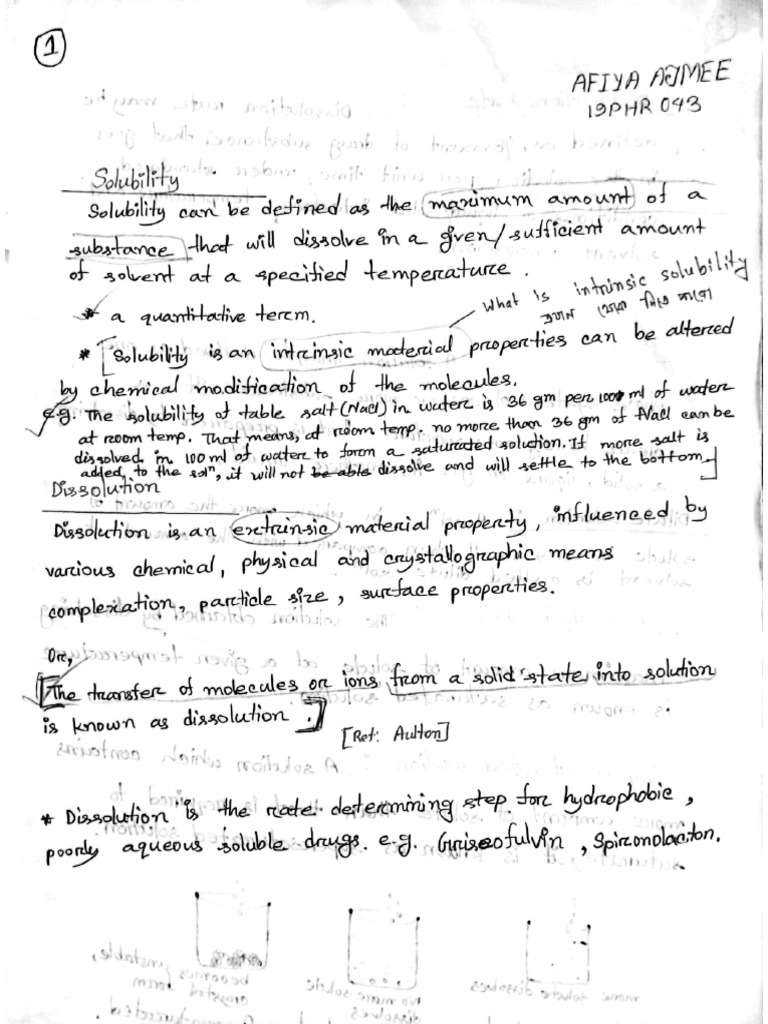 1
AFIYA AJMEE
19PHR 043
Solubility
Solubility can be defined as the maximum amount of a
substance that will dissolve in a given/sufficient amount
of solvent at a specified temperature.
* a quantitative term.
What is intrinsic solubility
* [Solubility is an intrinsic material properties can be altered
by chemical modification of the molecules.
e.g. The solubility of table salt (Nacl) in water is 36 gm per 100 ml of water
at room temp. That means, at room temp. no more than 36 gm of Nacl can be
dissolved in 100 ml of water to form a saturated solution. If more salt is
added to the solⁿ, it will not be able dissolve and will settle to the bottom]
Dissolution
Dissolution is an extrinsic material property, influenced by
various chemical, physical and crystallographic means
complexation, particle size, surface properties.
Or,
[The transfer of molecules or ions from a solid state into solution
is known as dissolution.]
[Ref: Aulton]
* Dissolution is the rate determining step for hydrophobic,
poorly aqueous soluble drugs. e.g. Griseofulvin, Spironolacton.